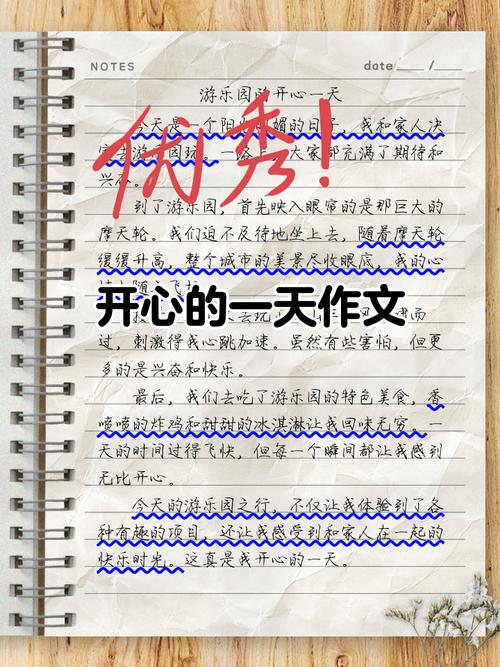 NOTES
date /
游乐园的开心一天
今天是一个阳光明媚的日子，我和家人决
定去游乐园玩。一路上，大家都充满了期待和
兴奋。
优秀！
到了游乐园，首先映入眼帘的是那巨大的
摩天轮。我们迫不及待地坐上去，随着摩天轮
缓缓升高，整个城市的美景尽收眼底，我的心
开心的一天作文
过，刺激得我心跳加速。虽然有些害怕，但更
多的是兴奋和快乐。
最后，我们去吃了游乐园的特色美食，香
喷喷的炸鸡和甜甜的冰淇淋让我回味无穷。一
天的时间过得飞快，但每一个瞬间都让我感到
无比开心。
今天的游乐园之行，不仅让我体验到了各
种有趣的项目，还让我感受到和家人在一起的
快乐时光。这真是我开心的一天。